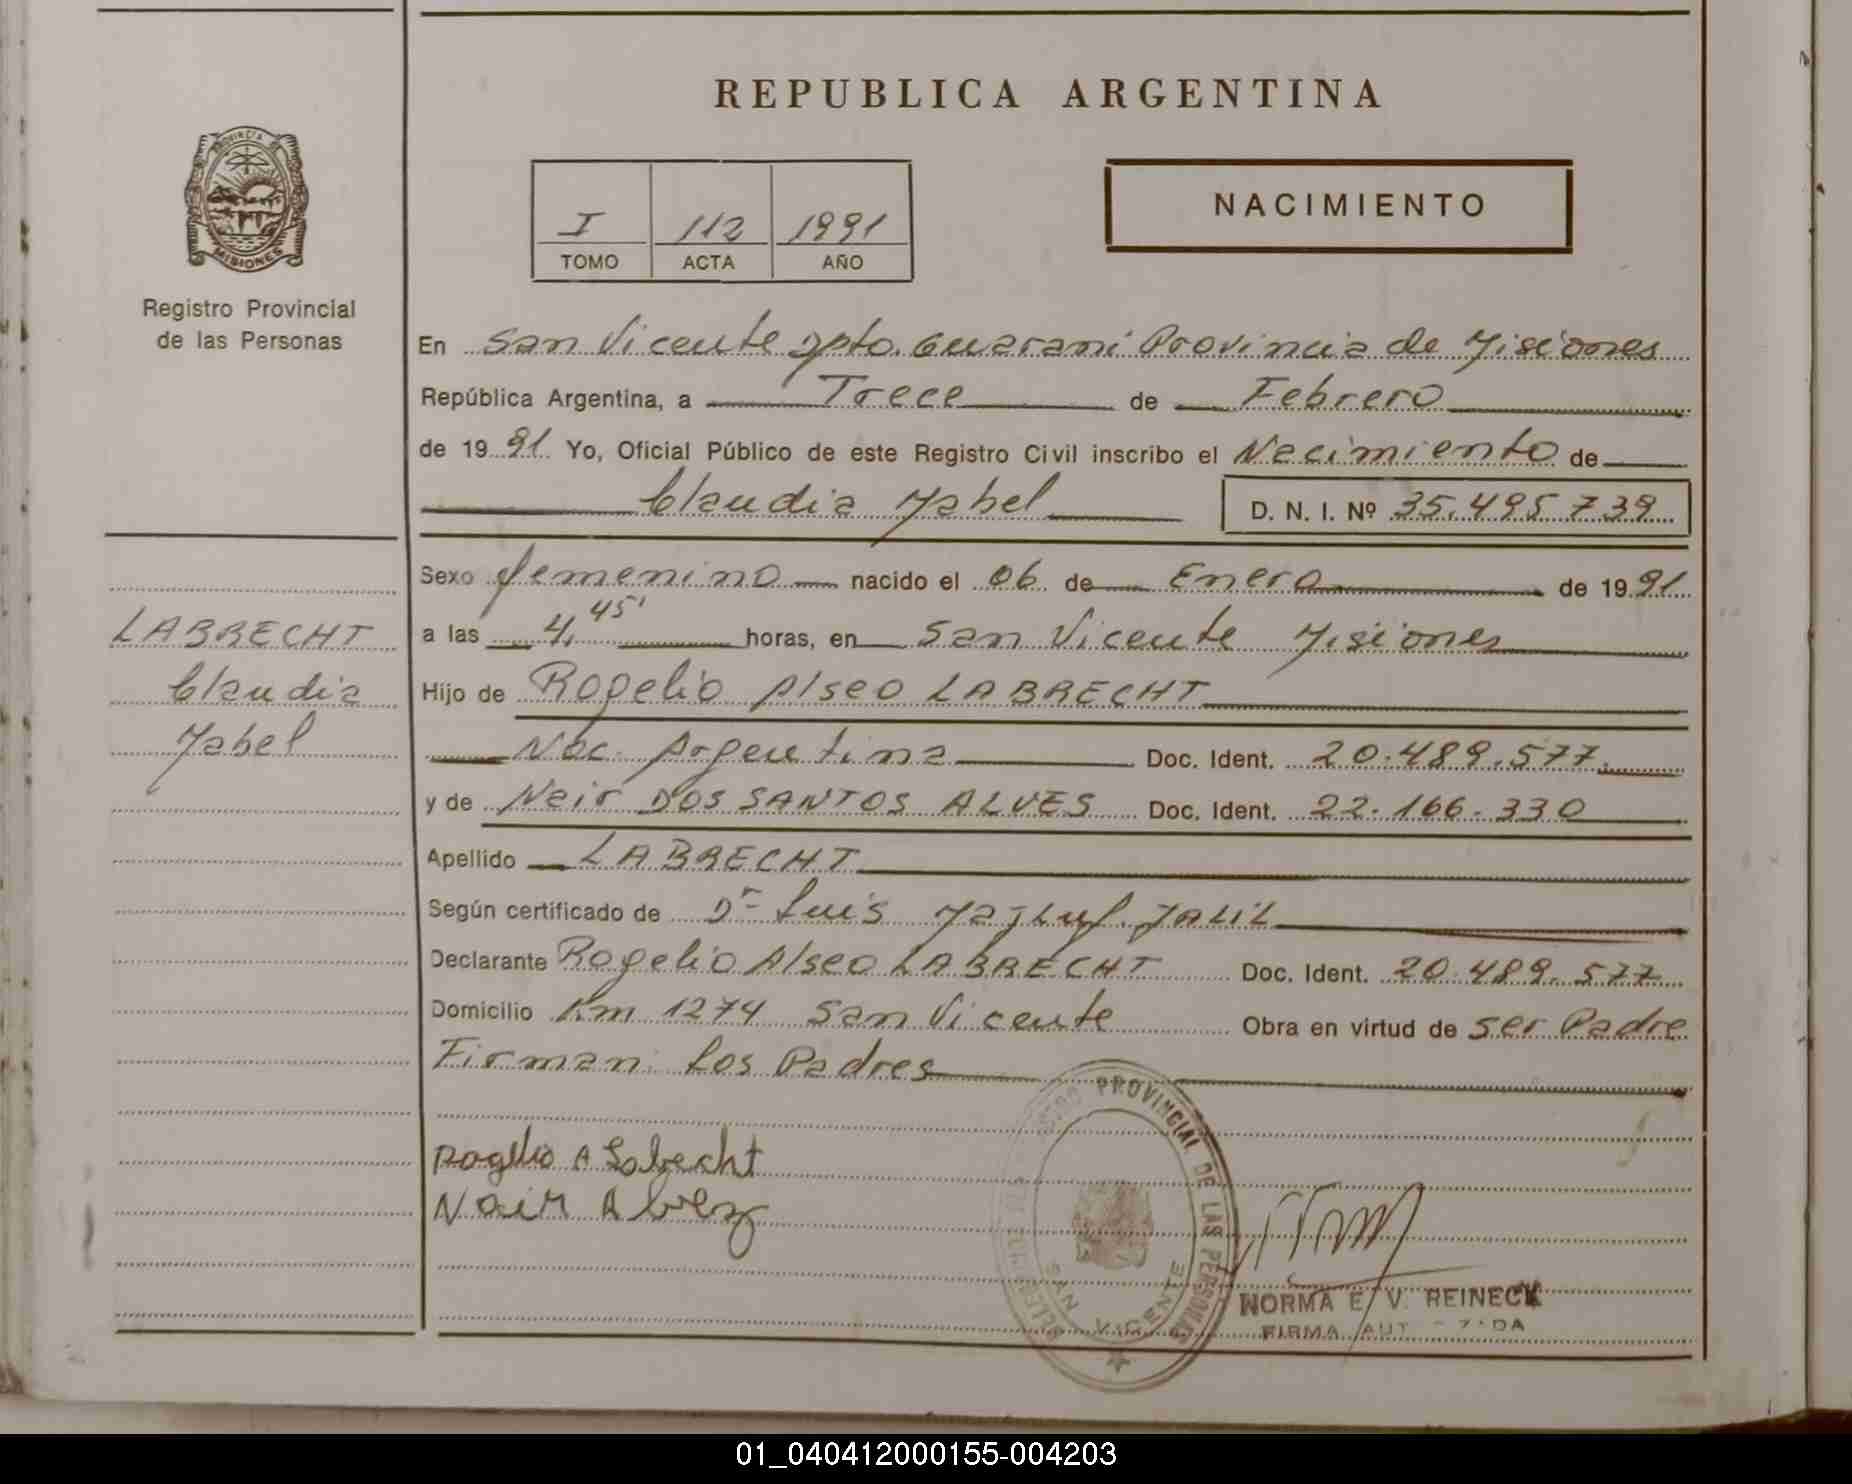 REPUBLICA ARGENTINA
PROVINCIA DE
MISIONES
Registro Provincial
de las Personas
I 112 1991
TOMO ACTA AÑO
NACIMIENTO
En San Vicente Dpto. Guarani Provincia de Misiones
República Argentina, a Trece de Febrero
de 1991 Yo, Oficial Público de este Registro Civil inscribo el Nacimiento de
Claudia Mabel D. N. I. Nº 35.495.739
Sexo femenino nacido el 06 de Enero de 1991
LABRECHT
Claudia
Mabel
a las 4,45' horas, en San Vicente Misiones
Hijo de Rogelio Alseo LABRECHT
Nac. Argentina Doc. Ident. 20.489.577
y de Nair DOS SANTOS ALVES Doc. Ident. 22.166.330
Apellido LABRECHT
Según certificado de Dr Luis JALIL
Declarante Rogelio Alseo LABRECHT Doc. Ident. 20.489.577
Domicilio Km 1274 San Vicente Obra en virtud de ser Padre
Firman: Los Padres
Rogelio A Labrecht
Nair Alvez
PROVINCIAL DE LAS PERSONAS
SAN VICENTE
NORMA E. V. REINECK
FIRMA
01_040412000155-004203